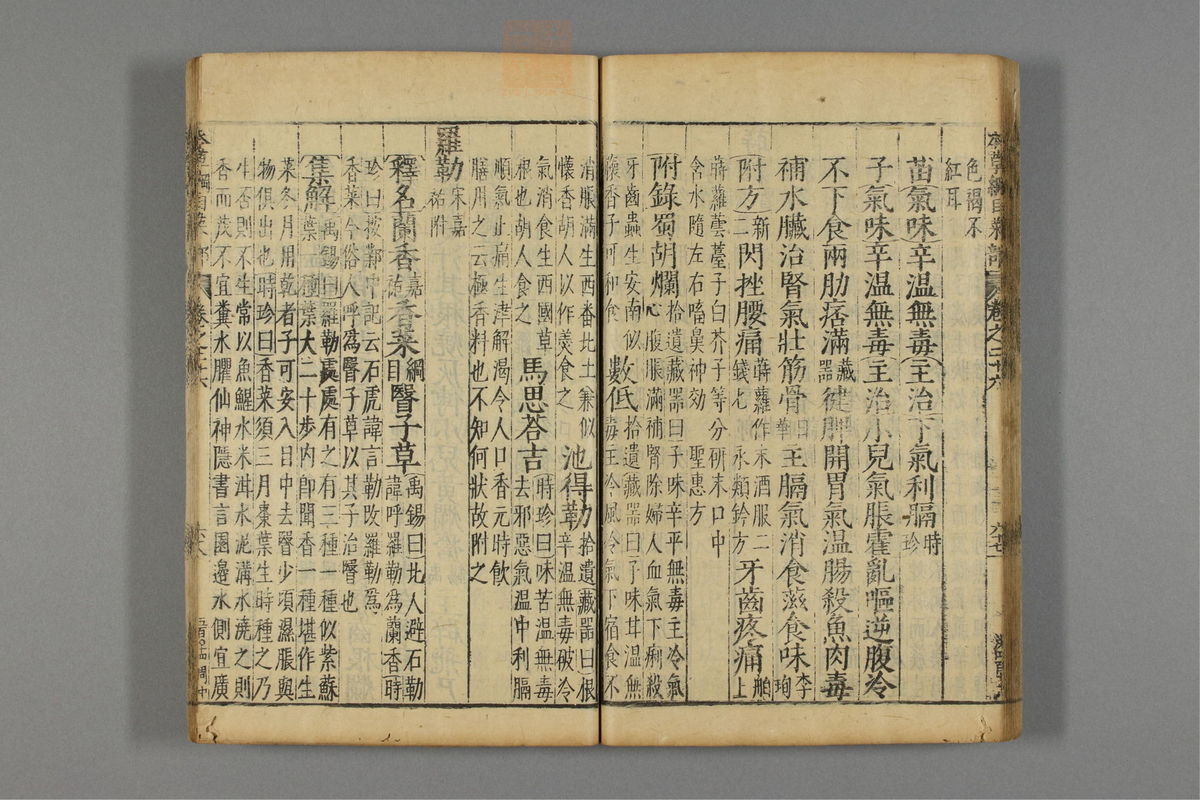 色褐不
紅耳
苗氣味辛溫無毒主治下氣利膈時珍
子氣味辛溫無毒主治小兒氣脹霍亂嘔逆腹冷
不下食兩肋痞滿藏器健脾開胃氣溫腸殺魚肉毒
補水臟治腎氣壯筋骨日華主膈氣消食滋食味李珣
附方新二閃挫腰痛蒔蘿作末酒服二錢匕永類鈐方牙齒疼痛舶上
蒔蘿蕓薹子白芥子等分研末口中
含水隨左右㗜鼻神効 聖惠方
附錄蜀胡爛拾遺藏器曰子味辛平無毒主冷氣
心腹脹滿補腎除婦人血氣下痢殺
牙齒蟲生安南似
懷香子可和食 數低拾遺藏器曰子味甘溫無
毒主冷風冷氣下宿食不
消脹滿生西番北土兼似
懷香胡人以作羹食之 池得勒拾遺藏器曰根
辛溫無毒破冷
氣消食生西國草
根也胡人食之 馬思荅吉時珍曰味苦溫無毒
去邪惡氣溫中利膈
順氣止痛生津解渴令人口香元時飲
膳用之云極香料也不知何狀故附之
羅勒宋嘉祐附
釋名蘭香嘉祐香菜綱目瞖子草禹錫曰北人避石勒
諱呼羅勒為蘭香時
珍曰按鄴中記云石虎諱言勒改羅勒為
香菜今俗人呼為瞖子草以其子治瞖也
集解禹錫曰羅勒處處有之有三種一種似紫蘇
葉一種葉大二十步內卽聞香一種堪作生
菜冬月用乾者子可安入目中去瞖少頃濕脹與
物俱出也時珍曰香菜須三月棗葉生時種之乃
生否則不生常以魚鯹水米泔水泥溝水澆之則
香而茂不宜糞水臞仙神隱書言園邊水側宜廣